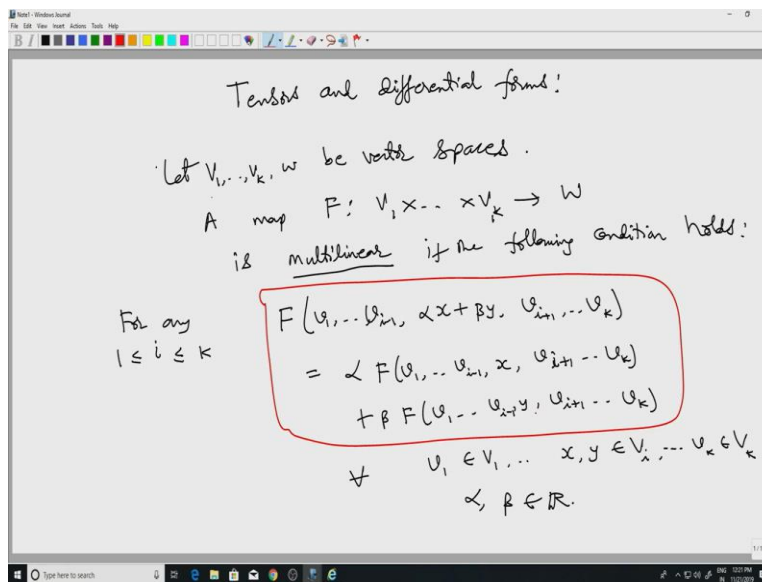 Note1 - Windows Journal
File Edit View Insert Actions Tools Help
B I
Tensors and differential forms:
Let V₁,..,Vₖ, W be vector spaces.
A map F: V₁ x-.. xVₖ → W
is multilinear if the following condition holds:
For any
1 ≤ i ≤ k
F(v₁,.. vᵢ₋₁, αx + βy, vᵢ₊₁,.. vₖ)
= α F(v₁,.. vᵢ₋₁, x, vᵢ₊₁ -- vₖ)
+ β F(v₁ -- vᵢ₋₁, y, vᵢ₊₁ -- vₖ)
∀ v₁ ∈ V₁,.. x, y ∈ Vᵢ, -- vₖ ∈ Vₖ
α, β ∈ ℝ.
1/1
Type here to search
ENG 12:21 PM
IN 11/21/2019